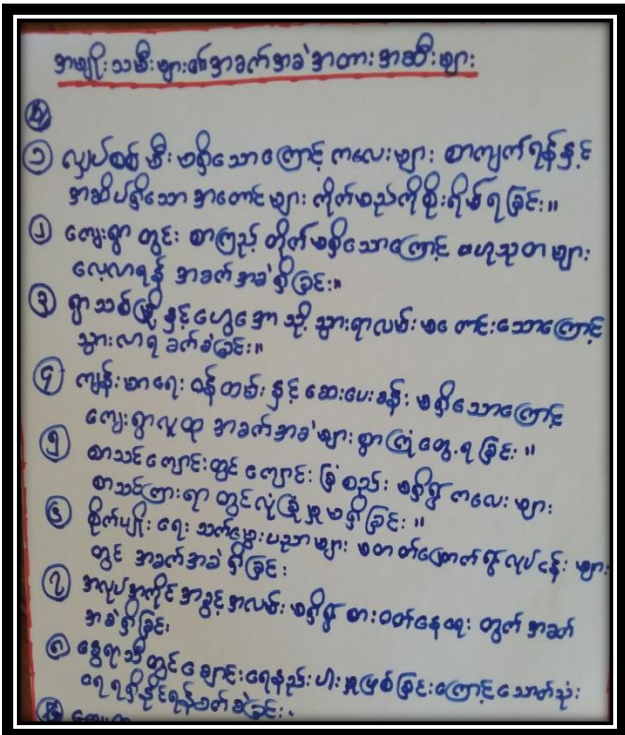 အမျိုးသမီးများ၏အခက်အခဲအတားအဆီးများ
၁ လျှပ်စစ်မီး မရှိသောကြောင့် ကလေးများ စာကျက်ရန်နှင့်
အဆိပ်ရှိသော အကောင်များ ကိုက်မည်ကိုစိုးရိမ်ရခြင်း။
၂ ကျေးရွာတွင်း စာကြည့်တိုက်မရှိသောကြောင့် ဗဟုသုတများ
လေ့လာရန် အခက်အခဲရှိခြင်း။
၃ ရွာသစ်မြို့နှင့် သို့ သွားရာလမ်းမကောင်းသောကြောင့်
သွားလာရခက်ခဲခြင်း။
၄ ကျန်းမာရေးဝန်ထမ်းနှင့် ဆေးပေးခန်း မရှိသောကြောင့်
ကျေးရွာလူထု အခက်အခဲများစွာကြုံတွေ့ရခြင်း။
၅ စာသင်ကျောင်းတွင် ကျောင်းခြံစည်း မရှိ၍ ကလေးများ
စာသင်ကြားရာတွင်လုံခြုံမှုမရှိခြင်း။
၆ စိုက်ပျိုးရေး သက်မွေးပညာများ မတတ်မြောက်၍လုပ်ငန်းများ
တွင် အခက်အခဲရှိခြင်း
၇ အလုပ်အကိုင်အခွင့်အလမ်းမရှိ၍ စားဝတ်နေရေးတွက်အခက်
အခဲရှိခြင်း
၈ နွေရာသီတွင်ချောင်းရေနည်းပါးမှုဖြစ်ခြင်းကြောင့်သောက်သုံး
ရေရရှိနိုင်ရန်ခက်ခဲခြင်း